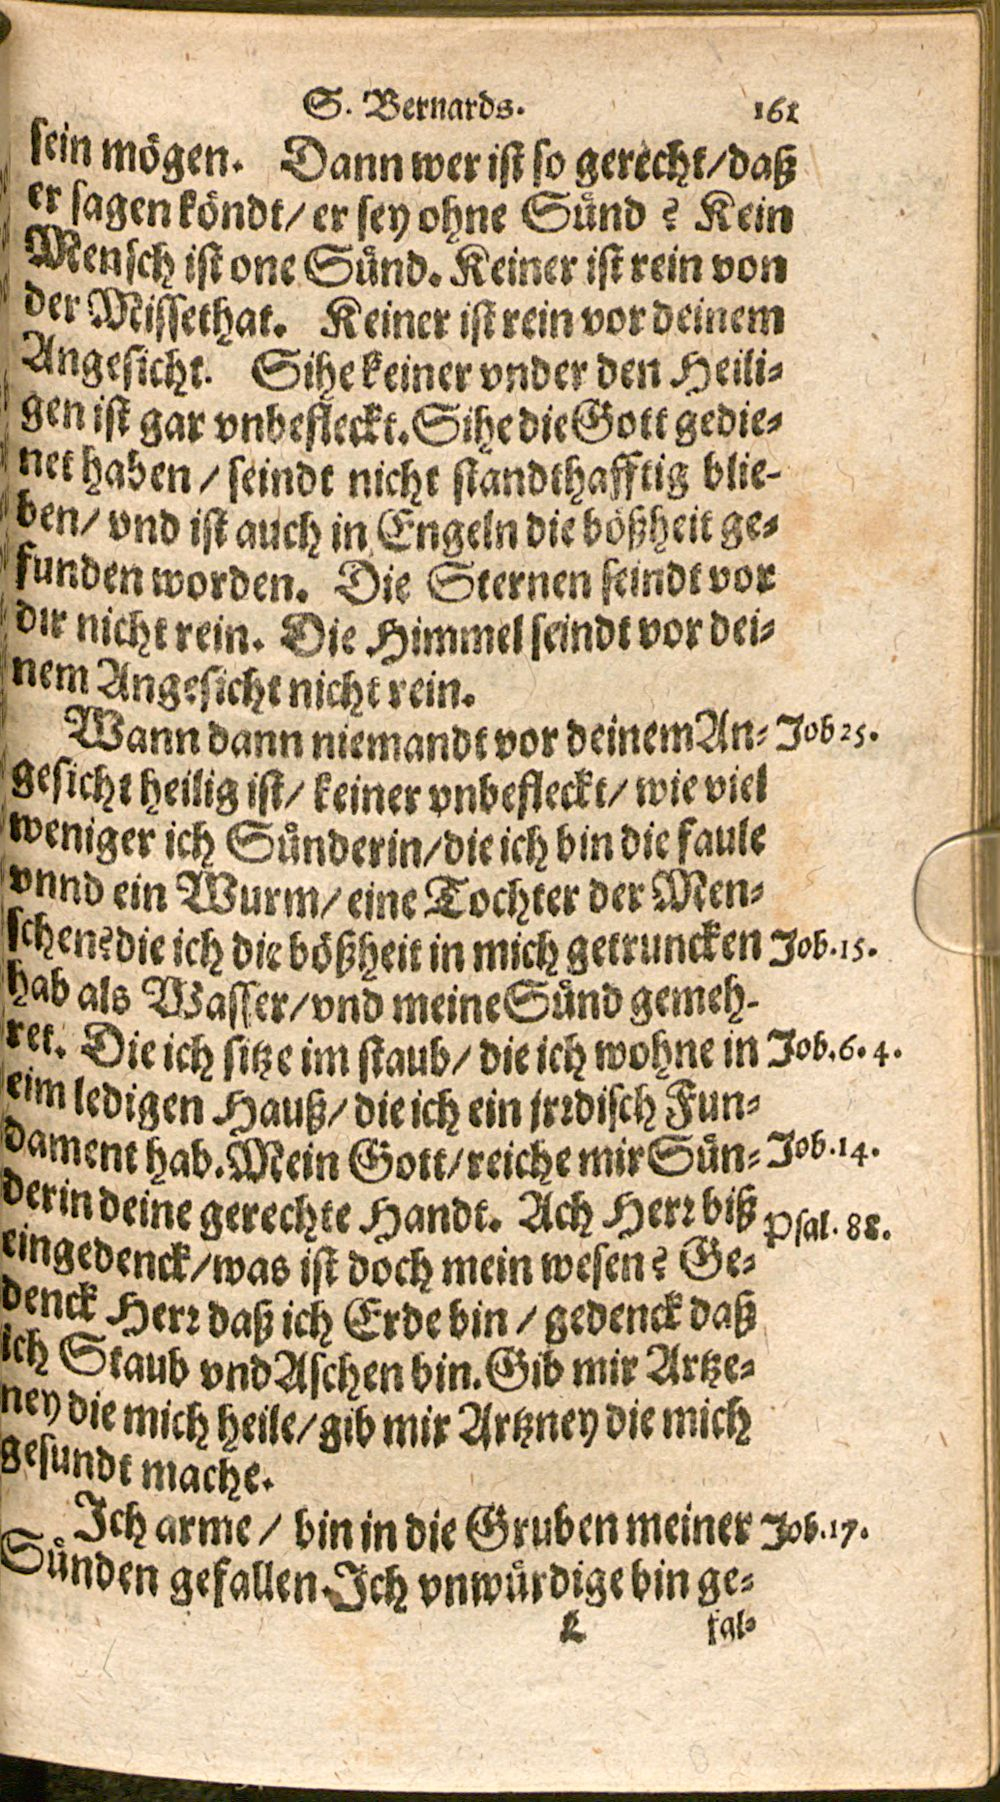 S. Bernards. 161
sein mögen. Dann wer ist so gerecht/daß
er sagen köndt/ er sey ohne Sünd? Kein
Mensch ist one Sünd. Keiner ist rein von
der Missethat. Keiner ist rein vor deinem
Angesicht. Sihe keiner vnder den Heili-
gen ist gar vnbefleckt. Sihe die Gott gedie-
net haben / seindt nicht standthafftig blie-
ben/ vnd ist auch in Engeln die bößheit ge-
funden worden. Die Sternen seindt vor
dir nicht rein. Die Himmel seindt vor dei-
nem Angesicht nicht rein.
Wann dann niemandt vor deinem An- Job 25.
gesicht heilig ist/ keiner vnbefleckt/ wie viel
weniger ich Sünderin/die ich bin die faule
vnnd ein Wurm/ eine Tochter der Men-
schen? die ich die bößheit in mich getruncken Job. 15.
hab als Wasser/vnd meine Sünd gemeh-
ret. Die ich sitze im staub/ die ich wohne in Job. 6. 4.
eim ledigen Hauß/ die ich ein jrꝛdisch Fun-
dament hab. Mein Gott/reiche mir Sün- Job. 14.
derin deine gerechte Handt. Ach Herꝛ biß Psal. 88.
eingedenck/was ist doch mein wesen? Ge-
denck Herꝛ daß ich Erde bin / gedenck daß
ich Staub vnd Aschen bin. Gib mir Artze-
ney die mich heile/gib mir Artzney die mich
gesundt mache.
Ich arme / bin in die Gruben meiner Job. 17.
Sünden gefallen. Ich vnwürdige bin ge-
L fal-